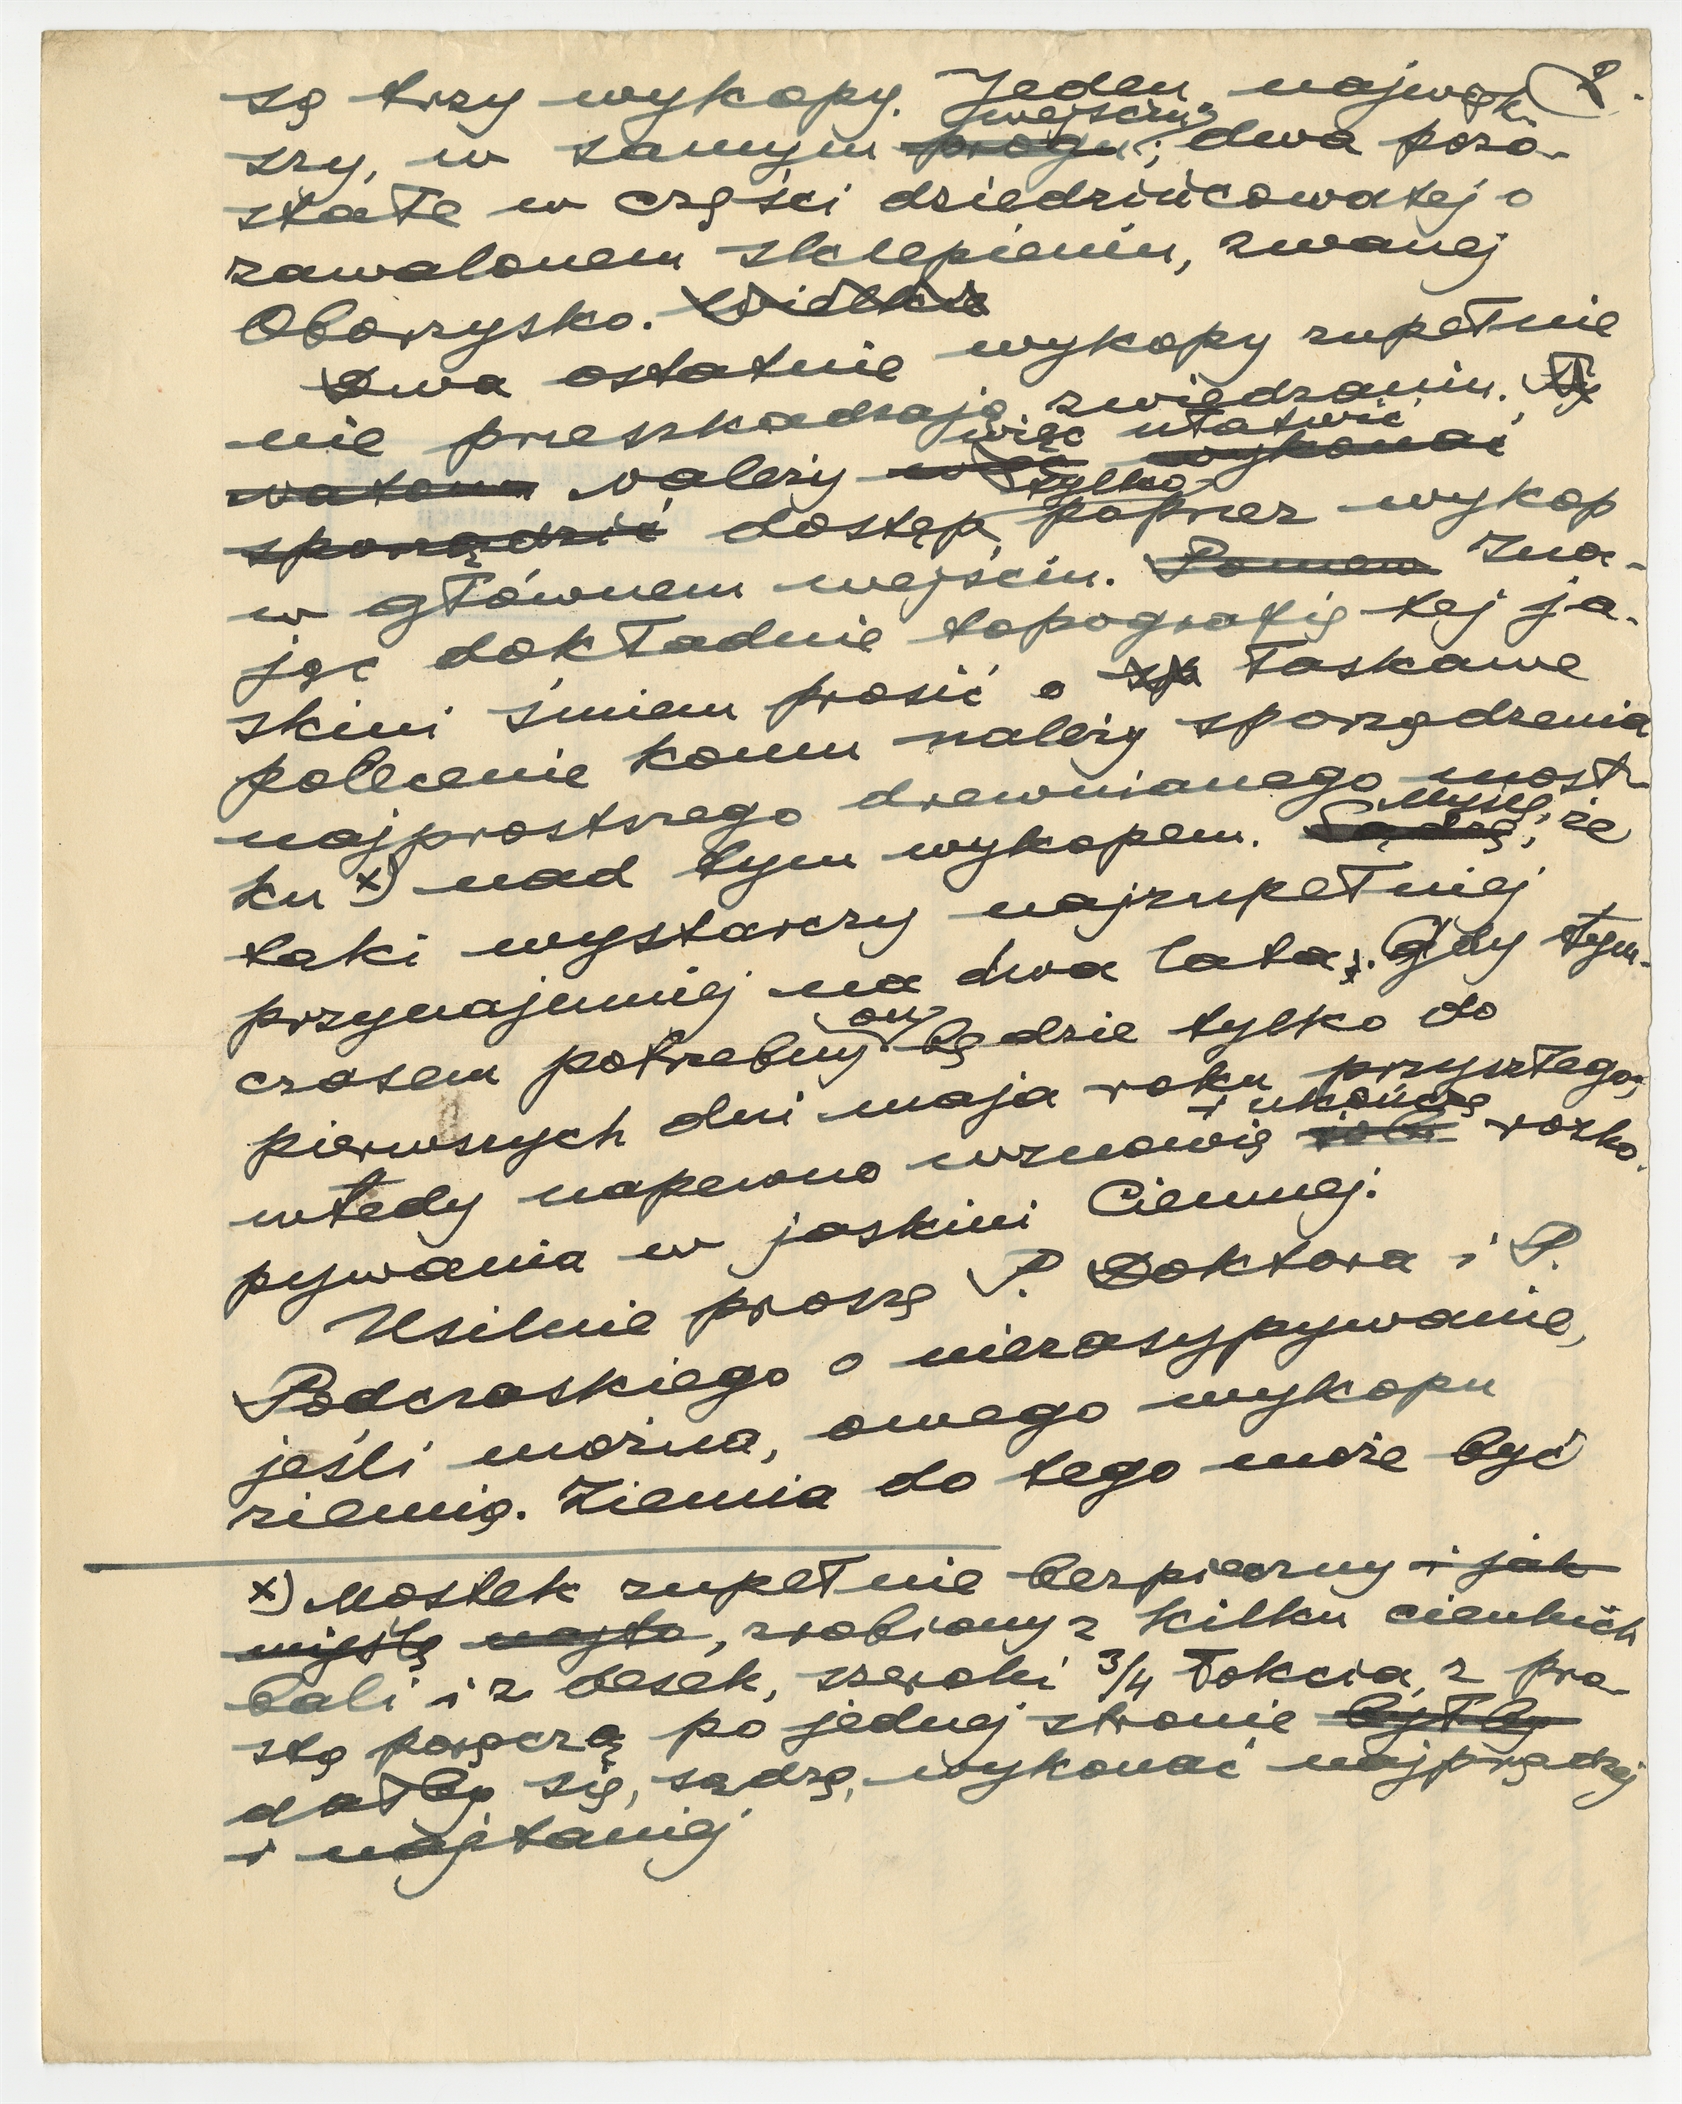 2.
są trzy wykopy. Jeden najwięk-
szy, w samym ~~progu~~ wejściu; dwa pozo-
stałe w części dziedzińcowatej o
zawalonem sklepieniu, zwanej
Oborzysko. ~~Wielkie~~
Dwa ostatnie wykopy zupełnie
nie przeszkadzają zwiedzaniu.
należy więc ułatwić ~~wykonać~~
~~sporządzić~~ dostęp tylko poprzez wykop
w głównem wejściu. Zna-
jąc dokładnie topografię tej ja-
skini śmiem prosić o łaskawe
polecenie komu należy sporządzenia
najprostszego drewnianego most-
ku x) nad tym wykopem. ~~Sądzę~~ Myślę, że
taki wystarczy najzupełniej
przynajmniej na dwa lata. Gdy tym-
czasem potrzebny on będzie tylko do
pierwszych dni maja roku przyszłego;
wtedy napewno wznowię i ukończę rozko-
pywania w jaskini Ciemnej.
Usilnie proszę P. Doktora i P.
Podczaskiego o niezasypywanie,
jeśli można, owego wykopu
ziemią. Ziemia do tego może być
x) Mostek zupełnie bezpieczny ~~i jak~~
~~myślę~~, zrobiony z kilku cienkich
bali i z desek, szeroki 3/4 łokcia, z pro-
stą poręczą po jednej stronie ~~byłby~~
dałby się, sądzę, wykonać najprędzej
i najtaniej